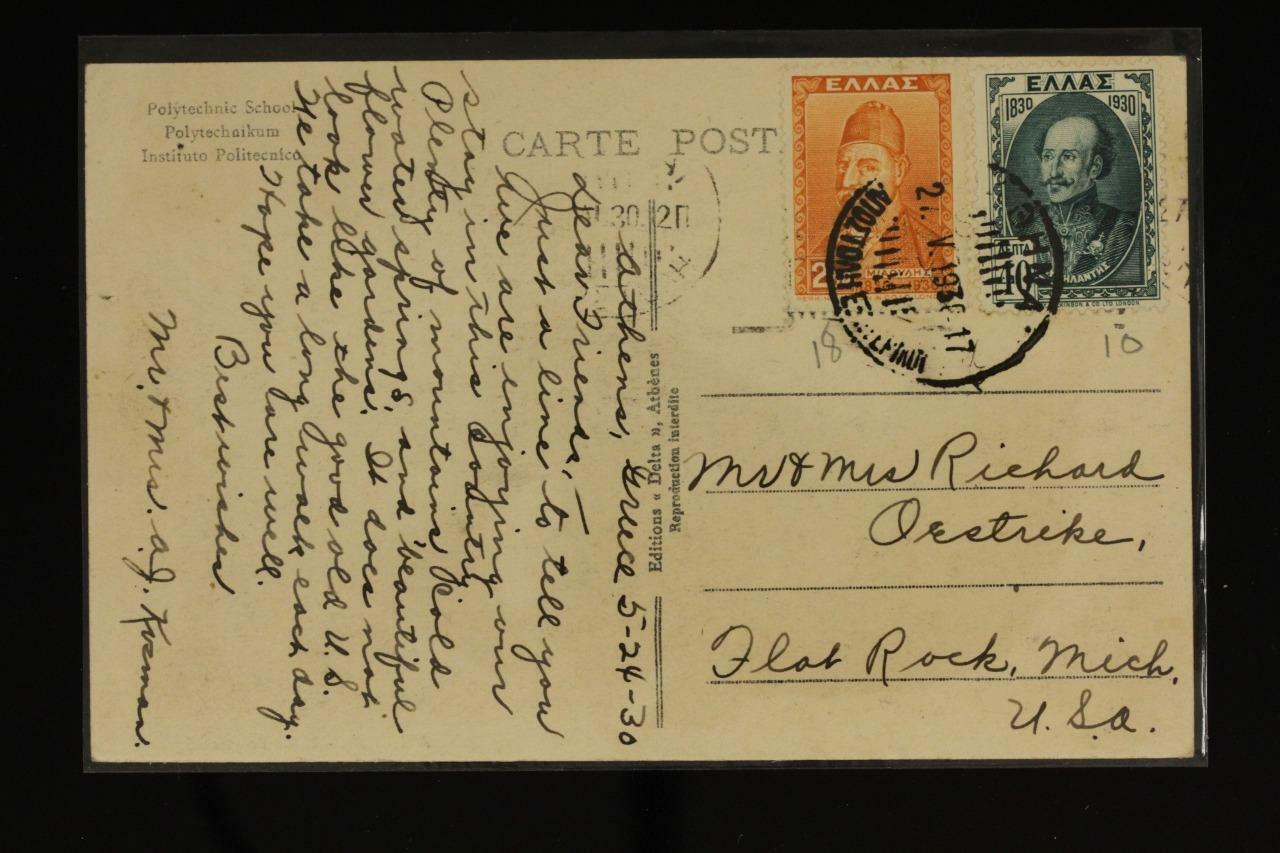 Polytechnic School
Polytechnikum
Instituto Politecnico
CARTE POST
Athens, Greece 5-24-30
Dear Friends,—
Just a line to tell you
we are injoying our
stay in this Country
Plenty of mountains Kold
water springs, and beautiful
flower gardens. It does not
look like the good old U.S.
We take a long walk each day.
Hope you are well.
Best wishes
Mr. & Mrs. A.J.
Editions « Delta », Athènes
Reproduction interdite
ΕΛΛΑΣ
2
ΜΙΑΟΥΛΗΣ
ΕΛΛΑΣ
1830 1930
ΛΕΠΤΑ
40
ΥΨΗΛΑΝΤΗΣ
27. V. 1930-17
ΑΠΟΣΤΟΛΗ
30. 2Π
18
10
Mr & Mrs Richard
Oestrike,
Flat Rock, Mich.
U.S.A.